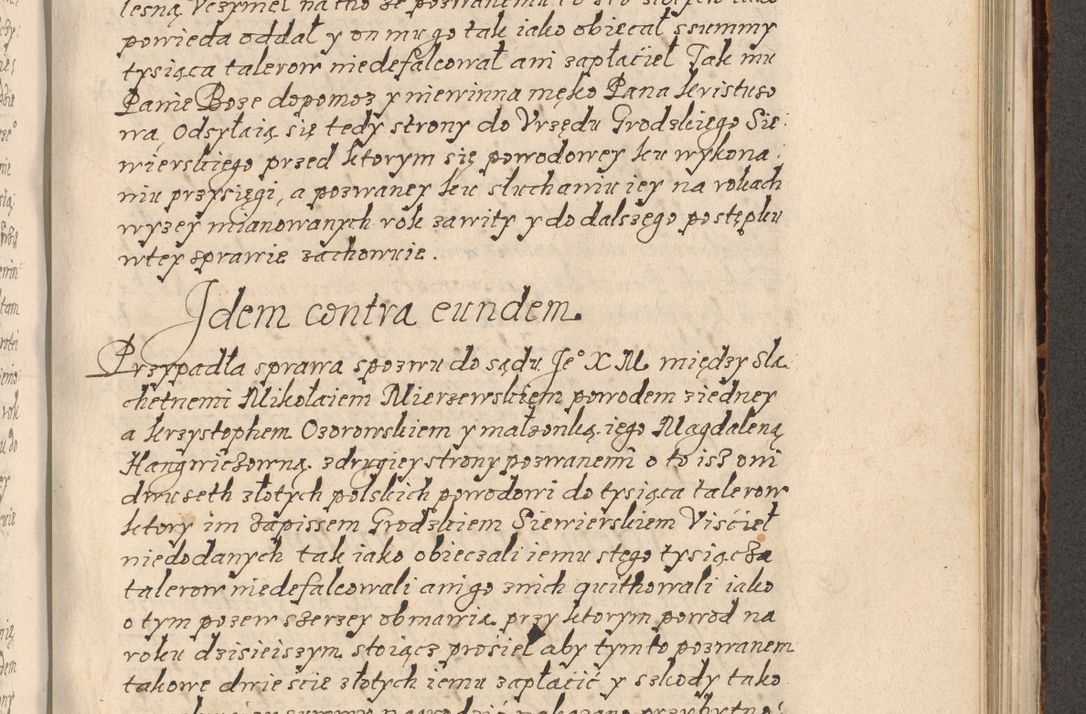 powieda oddał y on mu go tak iako obiecał ssummy
tysiąca talerow niedefalcował ani zapłaćieł Tak mu
Panie Boze dopomoz y niewinna męko Pana kristuso
wa, Odsyłaią się tedy strony do Vrzędu Grodzkięgo Sie:
wierskiego przed ktorym się powodowey ku wykona:
niu przysięgi, a pozwaney ku słuchaniu iey na rokach
wyzey mianowanych rok zawity y do dalszego postępku
wtey sprawie zachowuie.
Idem contra eundem
Przypadła sprawa spozwu do sądu Je° X M między Sla:
chetnemi Mikołaiem Mierzewskięm powodem ziedney
a krzystophem Ozorowskiem y małzonką iego Magdaleną
Hangwiczowną zdrugiey strony pozwanemi o to isz oni
dwuseth złotych polskich powodowi do tysiąca talerow
ktory im zapissem Grodzkiem Siewierskiem Viśćieł
niedodanych tak iako obieczali iemu stego tysiącza
talerow niedefalcowali ani go znich quithowali iako
o tym pozew szerzey obmawia przy ktorym powod na
roku dzisieiszym stoiącz prosieł aby tym to pozwanem
takowe dwieście złotych iemu zapłaćić y szkody tako